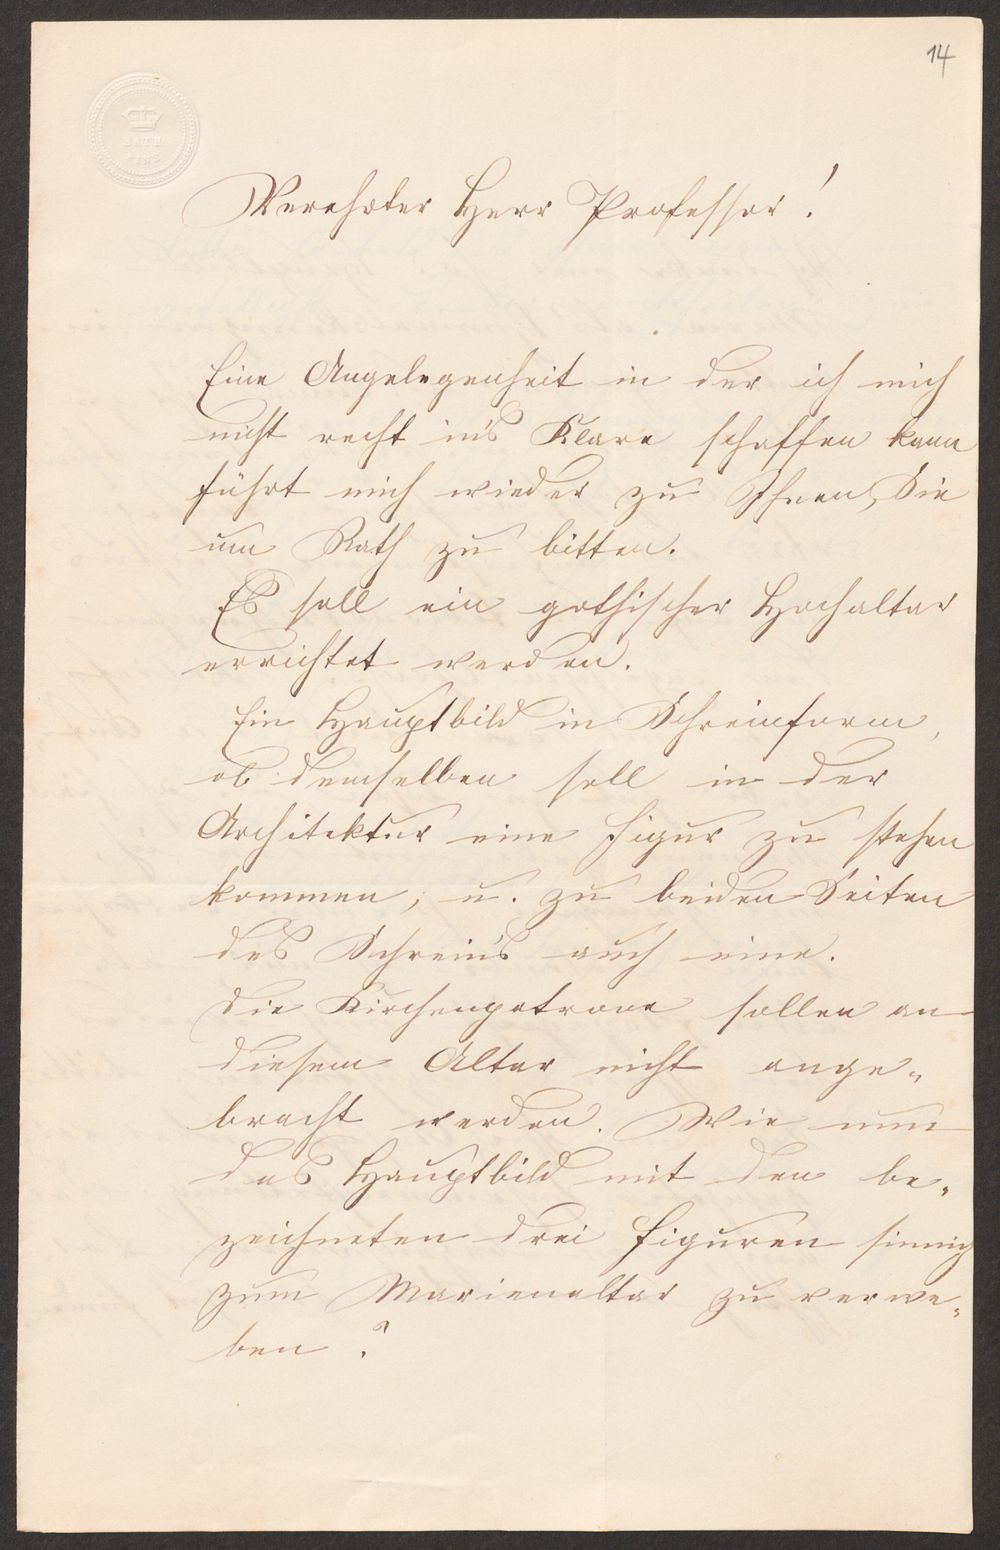 14
BATH
Verehrter Herr Professor!
Eine Angelegenheit in der ich mich
nicht recht in's Klare schaffen kann
führt mich wieder zu Ihnen, Sie
um Rath zu bitten.
Es soll ein gothischer Hochaltar
errichtet werden.
Ein Hauptbild in Schreinform,
ob demselben soll in der
Architektur eine Figur zu stehen
kommen; u. zu beiden Seiten
des Schrein's auch eine.
Die Kirchenpatrone sollen an
diesem Altar nicht ange„
bracht werden. Wie nun
das Hauptbild mit den be„
zeichneten drei Figuren sinnig
zum Marienaltar zu verwe„
ben?